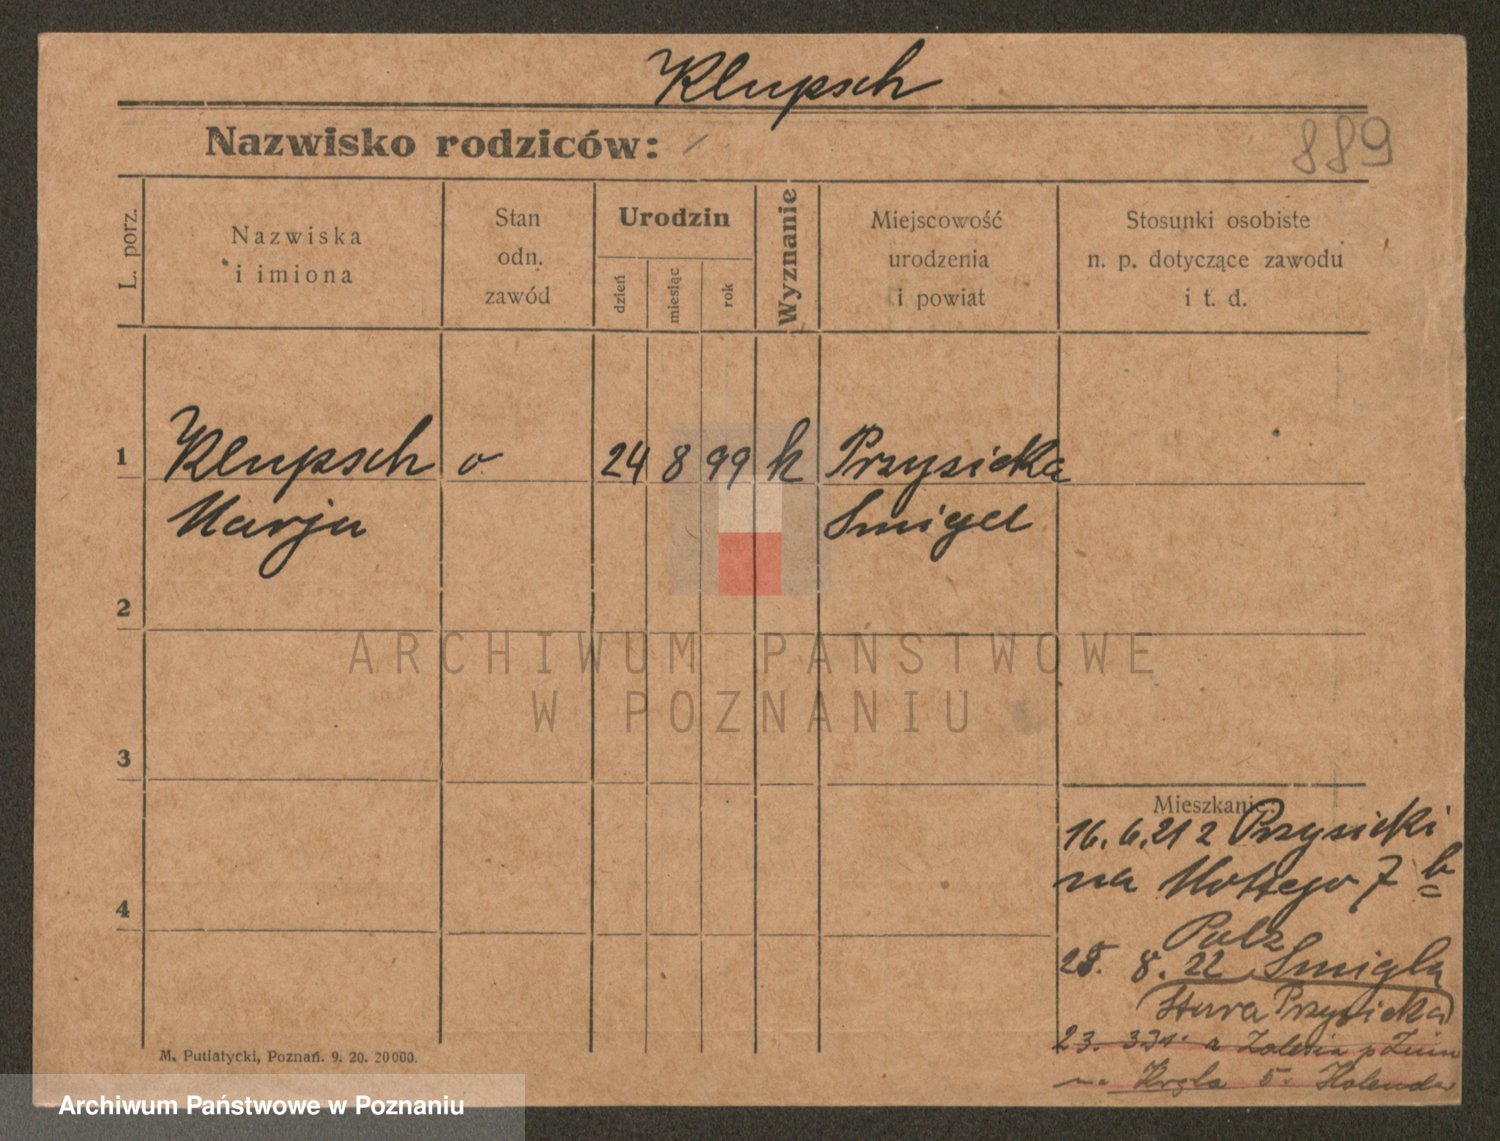 Klupsch
Nazwisko rodziców:
889
L. porz.
Nazwiska
i imiona
Stan
odn.
zawód
Urodzin
dzień
miesiąc
rok
Wyznanie
Miejscowość
urodzenia
i powiat
Stosunki osobiste
n. p. dotyczące zawodu
i t. d.
1 Klupsch 24 8 99 k Przysieka
Marja Smigel
2
ARCHIWUM PAŃSTWOWE
W POZNANIU
3
Mieszkanie:
16.6.21 z Przysieki
na 7 b
4
8. 22 Smigla
Stara Przysieka
23. z
5.
M. Putiatycki, Poznań. 9. 20. 20000.
Archiwum Państwowe w Poznaniu